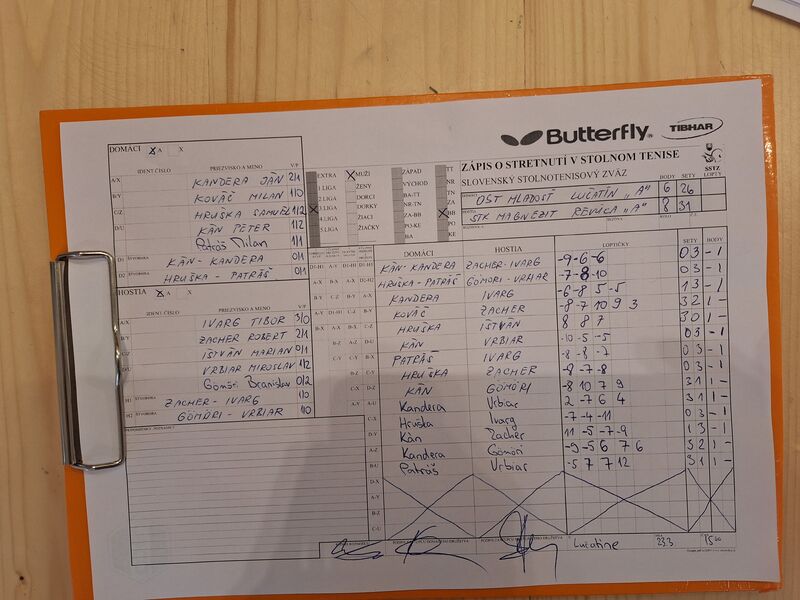 Butterfly
TIBHAR
ZÁPIS O STRETNUTÍ V STOLNOM TENISE
SLOVENSKÝ STOLNOTENISOVÝ ZVÄZ
SSTZ
BODY SETY LOPTY
OŠT MLADOSŤ LUČATÍN "A" 6 26
STK MAGNEZIT REVÚCA "A" 8 31
DOMÁCI X A X
IDENT. ČÍSLO PRIEZVISKO A MENO V/P
A/X KANDERA JÁN 2/1
B/Y KOVÁČ MILAN 1/0
C/Z HRUŠKA SAMUEL 1/2
D/U KÁN PETER 1/2
Patráš Milan 1/1
D1 ŠTVORHRA KÁN - KANDERA 0/1
D2 ŠTVORHRA HRUŠKA - PATRÁŠ 0/1
HOSTIA X A X
IDENT. ČÍSLO PRIEZVISKO A MENO V/P
A/X IVARG TIBOR 3/0
B/Y ZACHER ROBERT 2/1
C/Z IŠTVÁN MARIAN 0/1
D/U VRBIAR MIROSLAV 1/2
Gömöri Branislav 0/2
H1 ŠTVORHRA ZACHER - IVARG 1/0
H2 ŠTVORHRA GÖMÖRI - VRBIAR 1/0
EXTRA X MUŽI ZÁPAD TT
1.LIGA ŽENY VÝCHOD NR
2.LIGA DORCI BA-TT TN
X 3.LIGA DORKY NR-TN ZA
4.LIGA ŽIACI ZA-BB X BB
5.LIGA ŽIAČKY PO-KE PO
BA KE
DOMÁCI HOSTIA LOPTIČKY SETY BODY
KÁN-KANDERA ZACHER-IVARG -9 -6 -6 0 3 - 1
HRUŠKA-PATRÁŠ GÖMÖRI-VRBIAR -7 -8 -10 0 3 - 1
KANDERA IVARG -6 -8 5 -5 1 3 - 1
KOVÁČ ZACHER -8 -7 10 9 3 3 2 1 -
HRUŠKA IŠTVÁN 8 8 7 3 0 1 -
KÁN VRBIAR -10 -5 -5 0 3 - 1
PATRÁŠ IVARG -8 -8 -7 0 3 - 1
HRUŠKA ZACHER -8 -7 -8 0 3 - 1
KÁN GÖMÖRI -8 10 7 9 3 1 1 -
Kandera Vrbiar 2 -7 6 4 3 1 1 -
Hruška Ivarg -7 -4 -11 0 3 - 1
Kán Zacher 11 -5 -7 -9 1 3 - 1
Kandera Gömöri -9 -5 6 7 6 3 2 1 -
Patráš Vrbiar -5 7 7 12 3 1 1 -
Lučatine 23.3 15 00